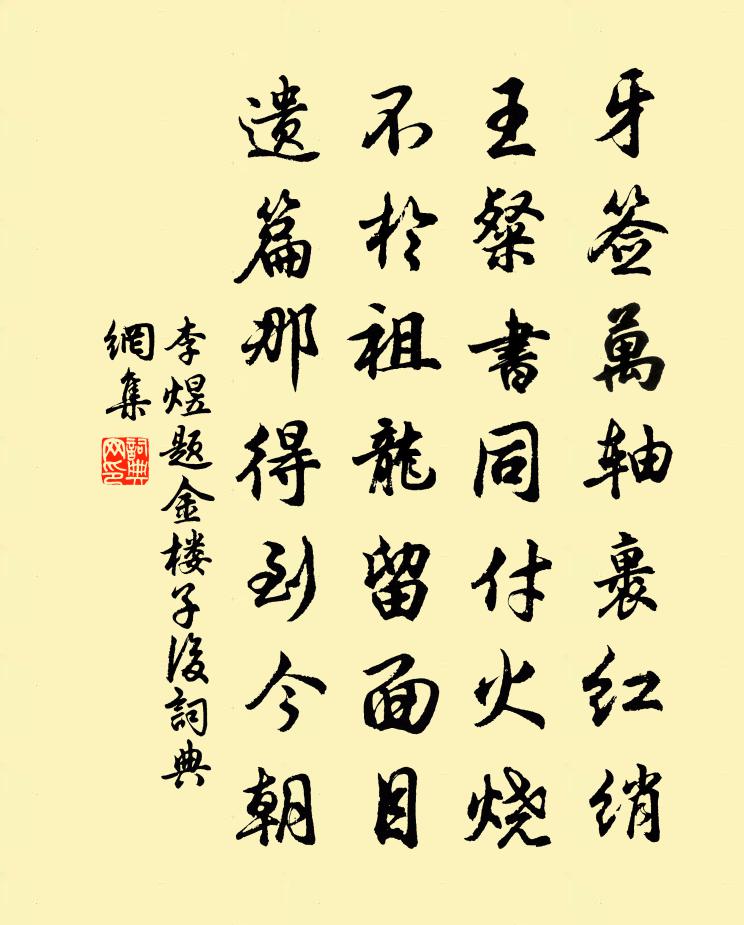 牙签萬轴裹红绡
王粲書同付火烧
不於祖龍留面目
遗篇那得到今朝
李煜题金楼子後詞典
網集
詞典
网印